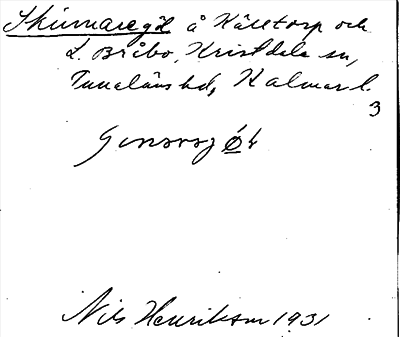 Skumaregöl å Käretorp och
L. Bråbo, Kristdala sn,
Tunaläns hd, Kalmar l.
3
Nils Henrikson 1931